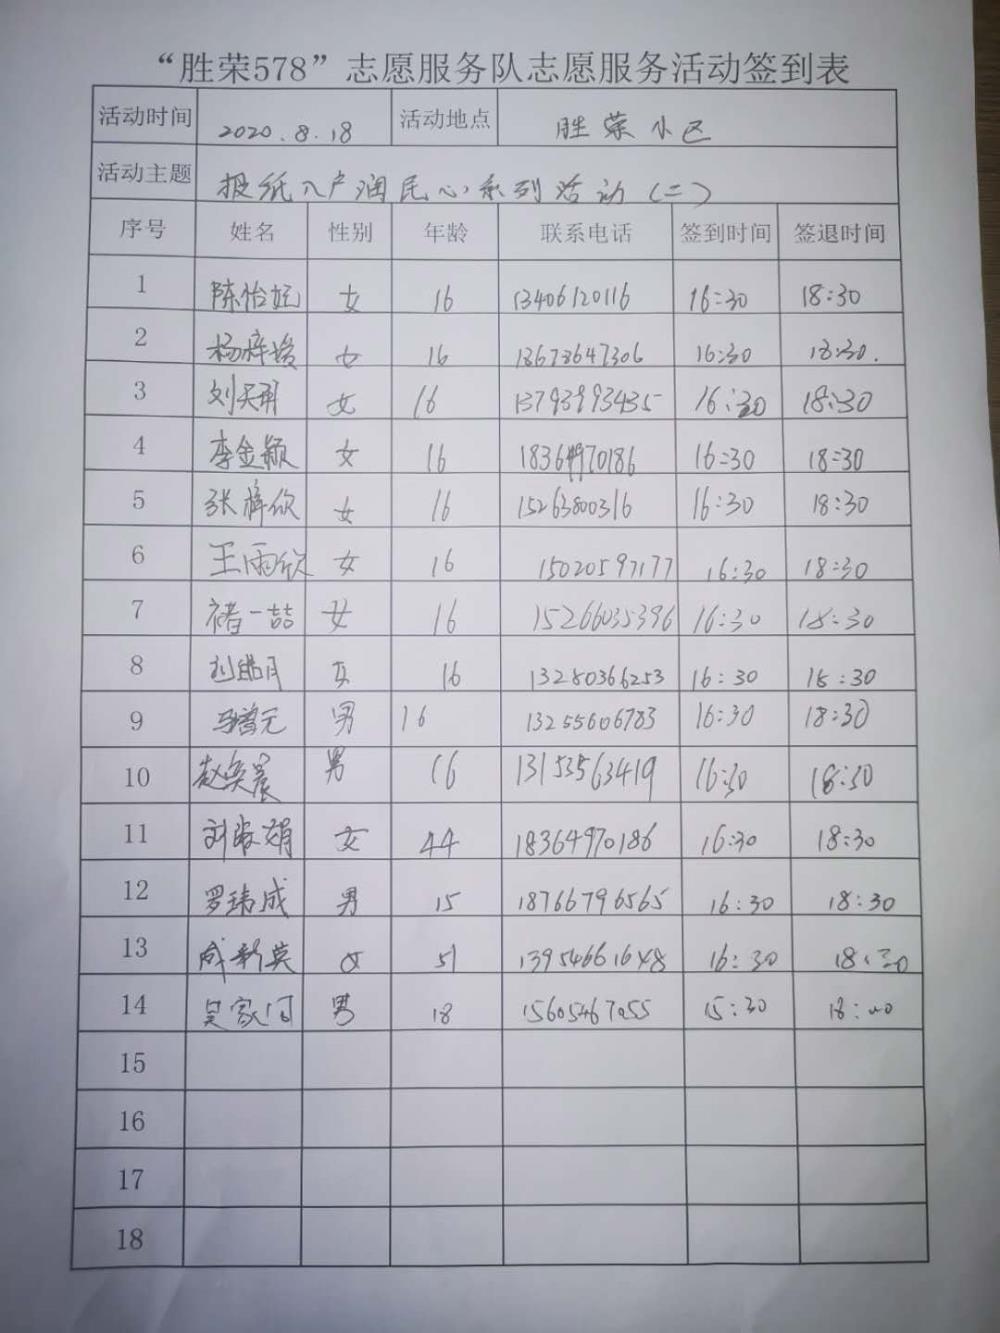 “胜荣578”志愿服务队志愿服务活动签到表
活动时间 2020.8.18 活动地点 胜荣小区
活动主题 报纸入户润民心系列活动(二)
序号 姓名 性别 年龄 联系电话 签到时间 签退时间
1 陈怡 女 16 13406120116 16:30 18:30
2 杨梓 女 16 13678647306 16:30 18:30.
3 刘天 女 16 13793993435 16:30 18:30
4 李金颖 女 16 18364970186 16:30 18:30
5 张梓欣 女 16 15263800316 16:30 18:30
6 王雨欣 女 16 15020597177 16:30 18:30
7 褚一喆 女 16 15266035396 16:30 18:30
8 刘皓月 女 16 13280366253 16:30 18:30
9 马 元 男 16 13255606783 16:30 18:30
10 赵奕晨 男 16 13153563419 16:30 18:30
11 刘淑娟 女 44 18364970186 16:30 18:30
12 罗玮成 男 15 18766796565 16:30 18:30
13 新英 女 51 13954661648 16:30 18:30
14 吴家 男 18 15605467055 15:30 18:
15
16
17
18